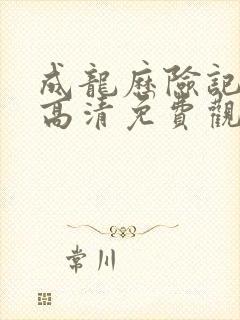 成龍歷險記
高清免費觀
常川